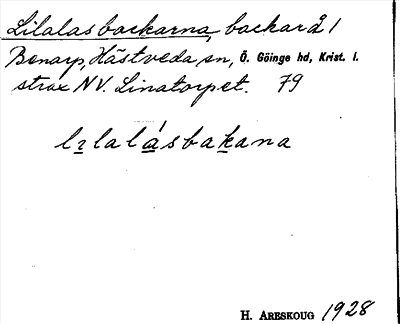 Lilalasbackarna, backar å 1
Benarp, Hästveda sn, Ö. Göinge hd, Krist. l.
strax NV. Linatorpet. 79
lılalásbakana
H. Areskoug 1928